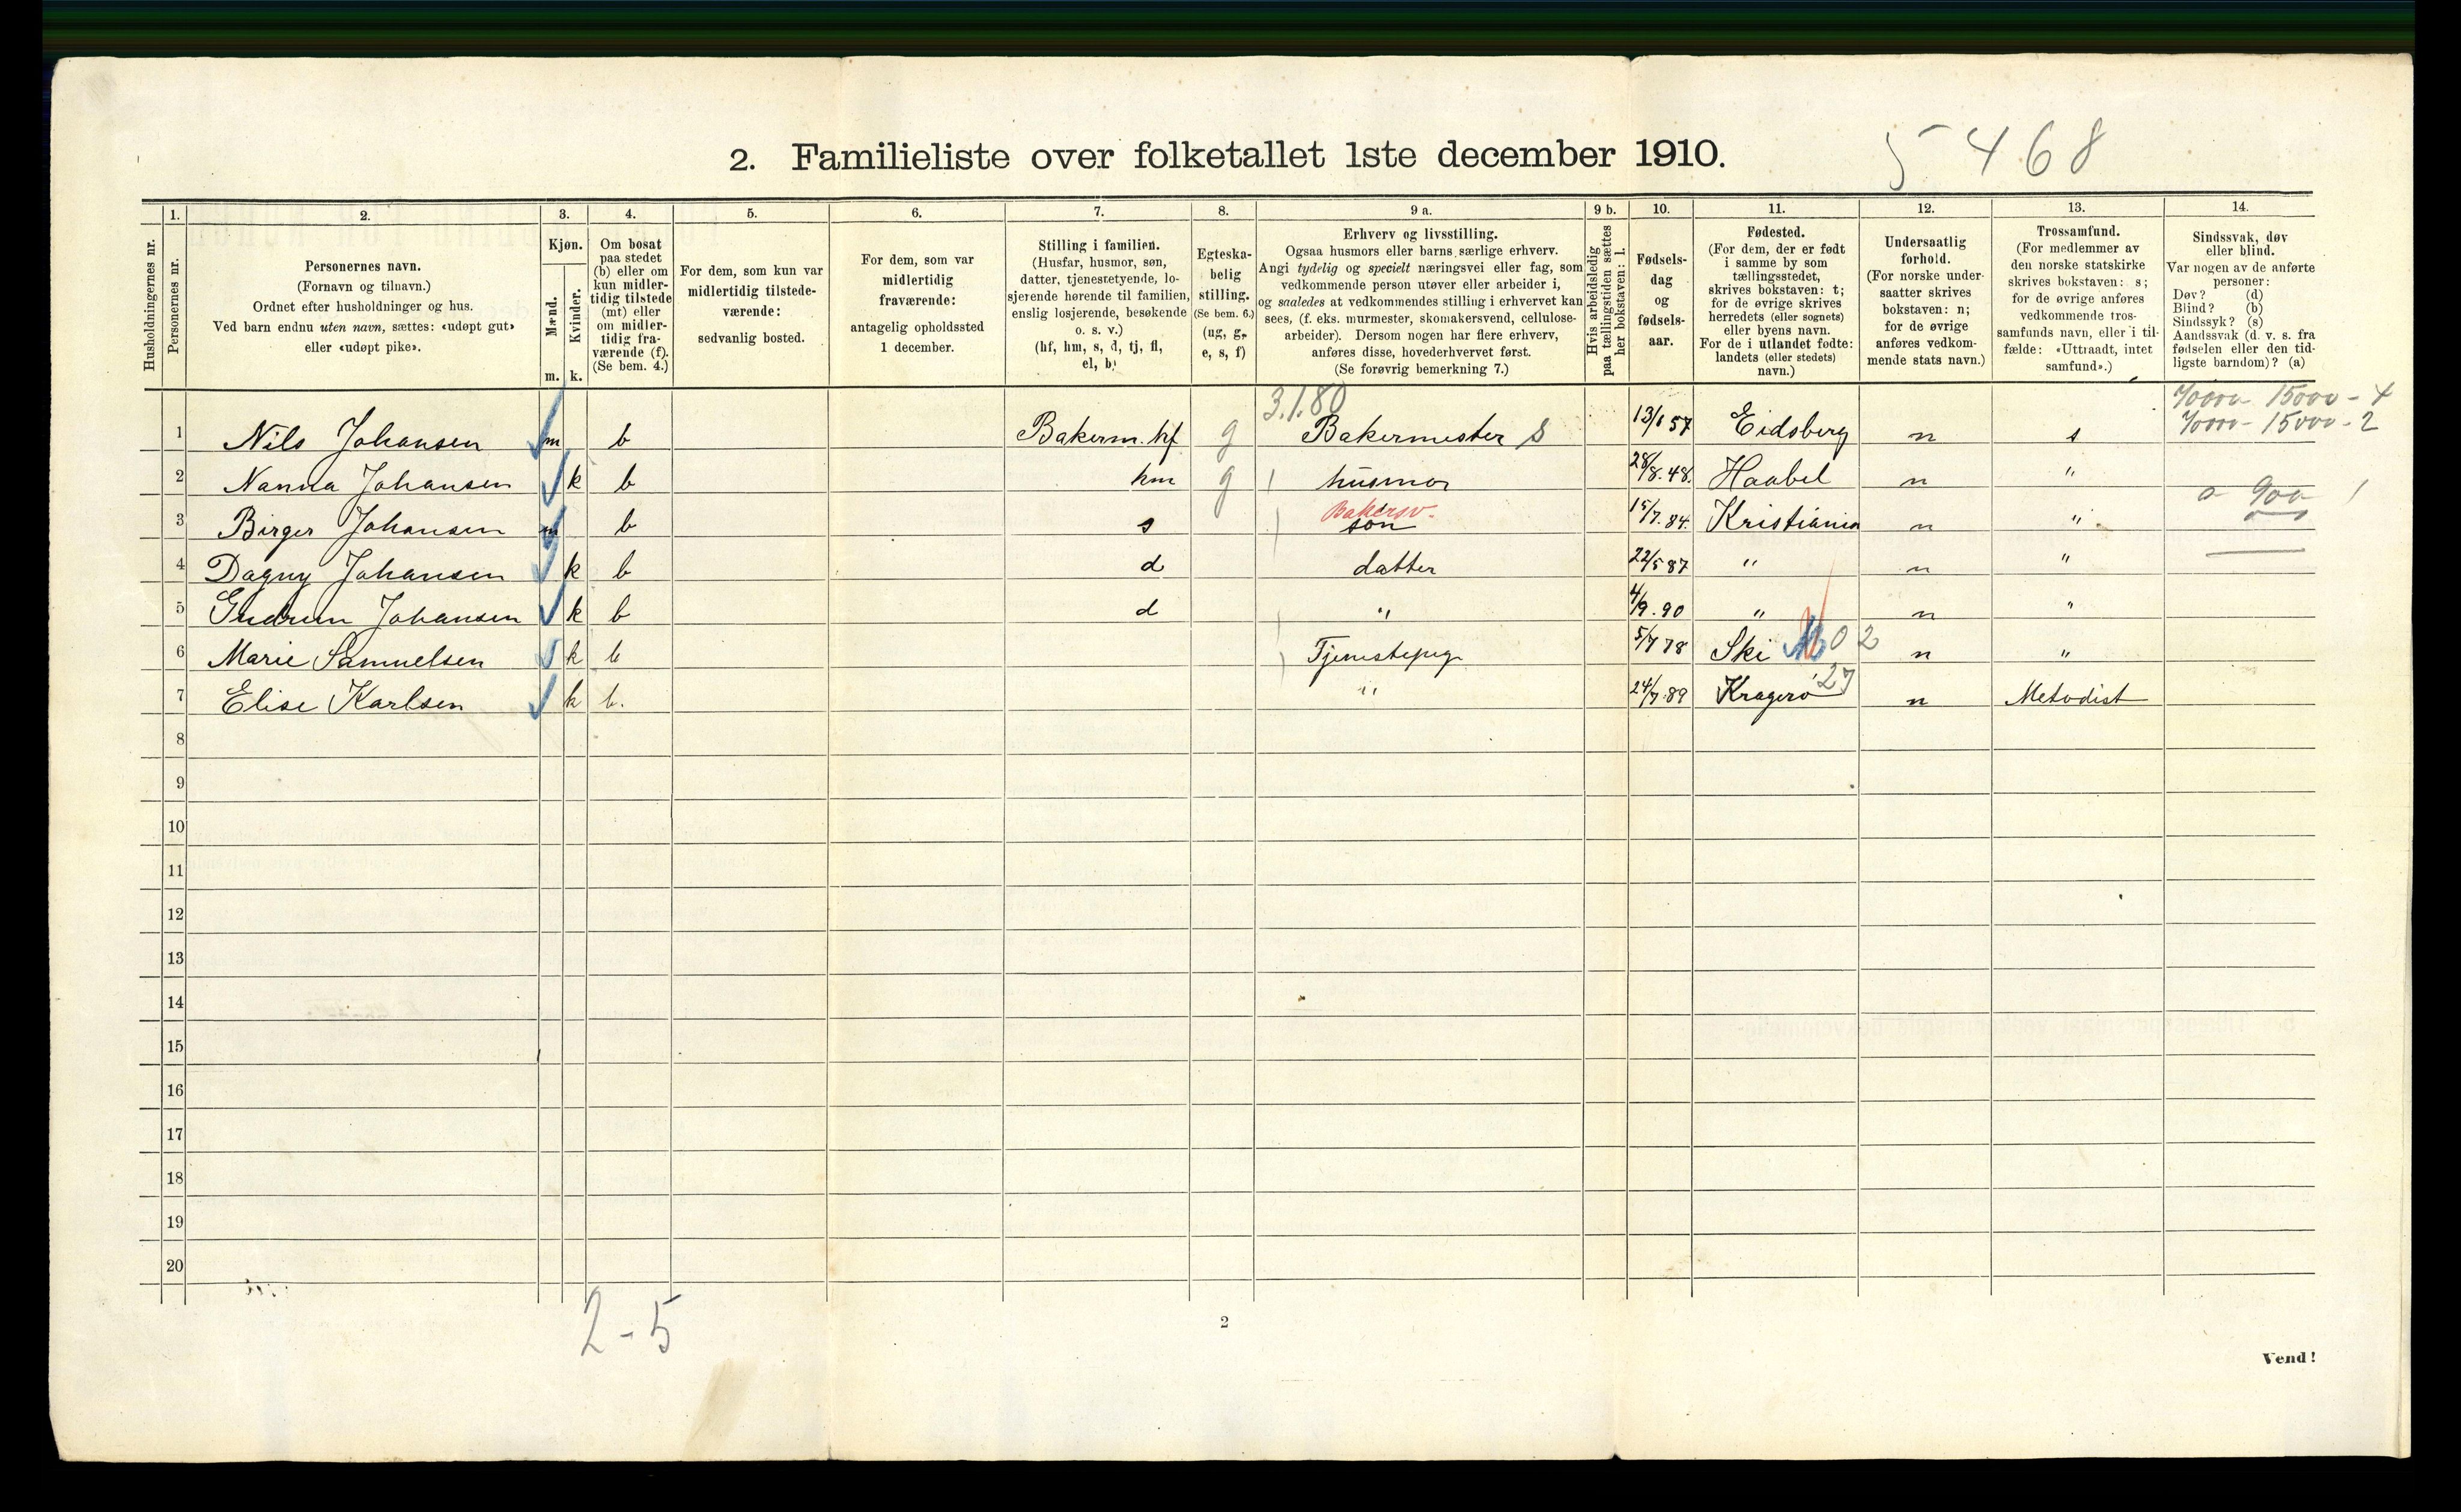 2. Familieliste over folketallet 1ste december 1910.
5468
Husholdningernes nr.
1.
Personernes nr.
2.
Personernes navn.
(Fornavn og tilnavn.)
Ordnet efter husholdninger og hus.
Ved barn endnu uten navn, sættes: «udøpt gut»
eller «udøpt pike».
3.
Kjøn.
Mænd.
Kvinder.
m. k.
4.
Om bosat
paa stedet
(b) eller om
kun midler-
tidig tilstede
(mt) eller
om midler-
tidig fra-
værende (f).
(Se bem. 4.)
5.
For dem, som kun var
midlertidig tilstede-
værende:
sedvanlig bosted.
6.
For dem, som var
midlertidig
fraværende:
antagelig opholdssted
1 december.
7.
Stilling i familien.
(Husfar, husmor, søn,
datter, tjenestetyende, lo-
sjerende hørende til familien,
enslig losjerende, besøkende
o. s. v.)
(hf, hm, s, d, tj, fl,
el, b)
8.
Egteska-
belig
stilling.
(Se bem. 6.)
(ug, g,
e, s, f)
9 a.
Erhverv og livsstilling.
Ogsaa husmors eller barns særlige erhverv.
Angi tydelig og specielt næringsvei eller fag, som
vedkommende person utøver eller arbeider i,
og saaledes at vedkommendes stilling i erhvervet kan
sees, (f. eks. murmester, skomakersvend, cellulose-
arbeider). Dersom nogen har flere erhverv,
anføres disse, hovederhvervet først.
(Se forøvrig bemerkning 7.)
9 b.
Hvis arbeidsledig
paa tællingstiden sættes
her bokstaven: l.
10.
Fødsels-
dag
og
fødsels-
aar.
11.
Fødested.
(For dem, der er født
i samme by som
tællingsstedet,
skrives bokstaven: t;
for de øvrige skrives
herredets (eller sognets)
eller byens navn.
For de i utlandet fødte:
landets (eller stedets)
navn.)
12.
Undersaatlig
forhold.
(For norske under-
saatter skrives
bokstaven: n;
for de øvrige
anføres vedkom-
mende stats navn.)
13.
Trossamfund.
(For medlemmer av
den norske statskirke
skrives bokstaven: s;
for de øvrige anføres
vedkommende tros-
samfunds navn, eller i til-
fælde: «Uttraadt, intet
samfund».)
14.
Sindssvak, døv
eller blind.
Var nogen av de anførte
personer:
Døv? (d)
Blind? (b)
Sindssyk? (s)
Aandssvak (d. v. s. fra
fødselen eller den tid-
ligste barndom)? (a)
3.1.80
15000 - 4
1 Nils Johansen m b Bakerm. hf g Bakermester S 13/1 57 Eidsberg n s 15000 - 2
2 Nanna Johansen k b hm g husmor 28/8.48. Haabel n "
900 1
Bakersv.
3 Birger Johansen m b s søn 15/7.84. Kristiania n "
4 Dagny Johansen k b d datter 22/5 87 " n "
5 Gudrun Johansen k b d " 4/9.90 " n "
6 Marie Samuelsen k b Tjenestepig 5/7 78 Ski 02 n "
7 Elise Karlsen k b. " 24/7.89 Kragerø 27 n Metodist
8
9
10
11
12
13
14
15
16
17
18
19
20
2-5
2
Vend!